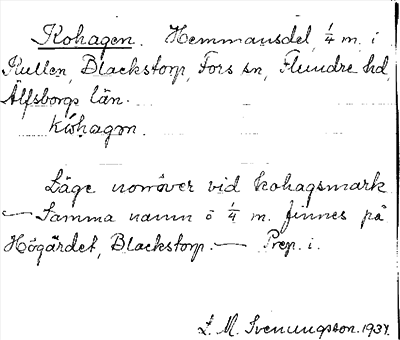 Kohagen. Hemmansdel, 1/4 m. i
Kullen, Blackstorp, Fors sn, Flundre hd,
Älfsborgs län.
kóhagɷn.
Läge norröver vid kohagsmark
— Samma namn å 1/4 m. finnes på
Högärdet, Blackstorp. — Prep. i.
L. M. Svenungsson. 1937.